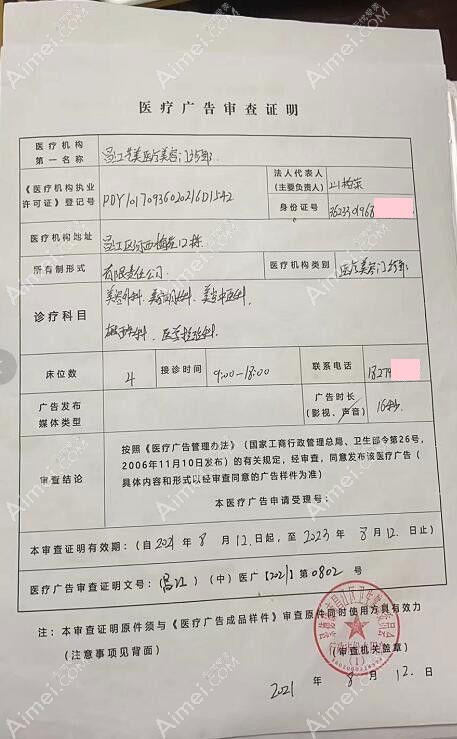 医疗广告审查证明
医疗机构
第一名称
昌江艺美医疗美容门诊部
《医疗机构执业
许可证》登记号
PDY10170936020216D1542
法人代表人
(主要负责人)
身份证号
3623301968
医疗机构地址
所有制形式
有限责任公司
医疗机构类别
医疗美容门诊部
诊疗科目
美容外科、美容牙科、美容中医科、
麻醉科、医学检验科、
床位数
4
接诊时间
9:00-18:00
联系电话
18279
广告发布
媒体类型
广告时长
(影视、声音)
审查结论
按照《医疗广告管理办法》(国家工商行政管理总局、卫生部令第26号，
2006年11月10日发布)的有关规定，经审查，同意发布该医疗广告(
具体内容和形式以经审查同意的广告样件为准)
本医疗广告申请受理号：
本审查证明有效期：(自2021年8月12日起，至2023年8月12日止)
医疗广告审查证明文号：(昌江)(中)医广【2021】第0802号
注：本审查证明原件须与《医疗广告成品样件》审查原件同时使用方具有效力
(注意事项见背面)
(审查机关盖章)
(1)
2021年8月12日
Aimei.COM